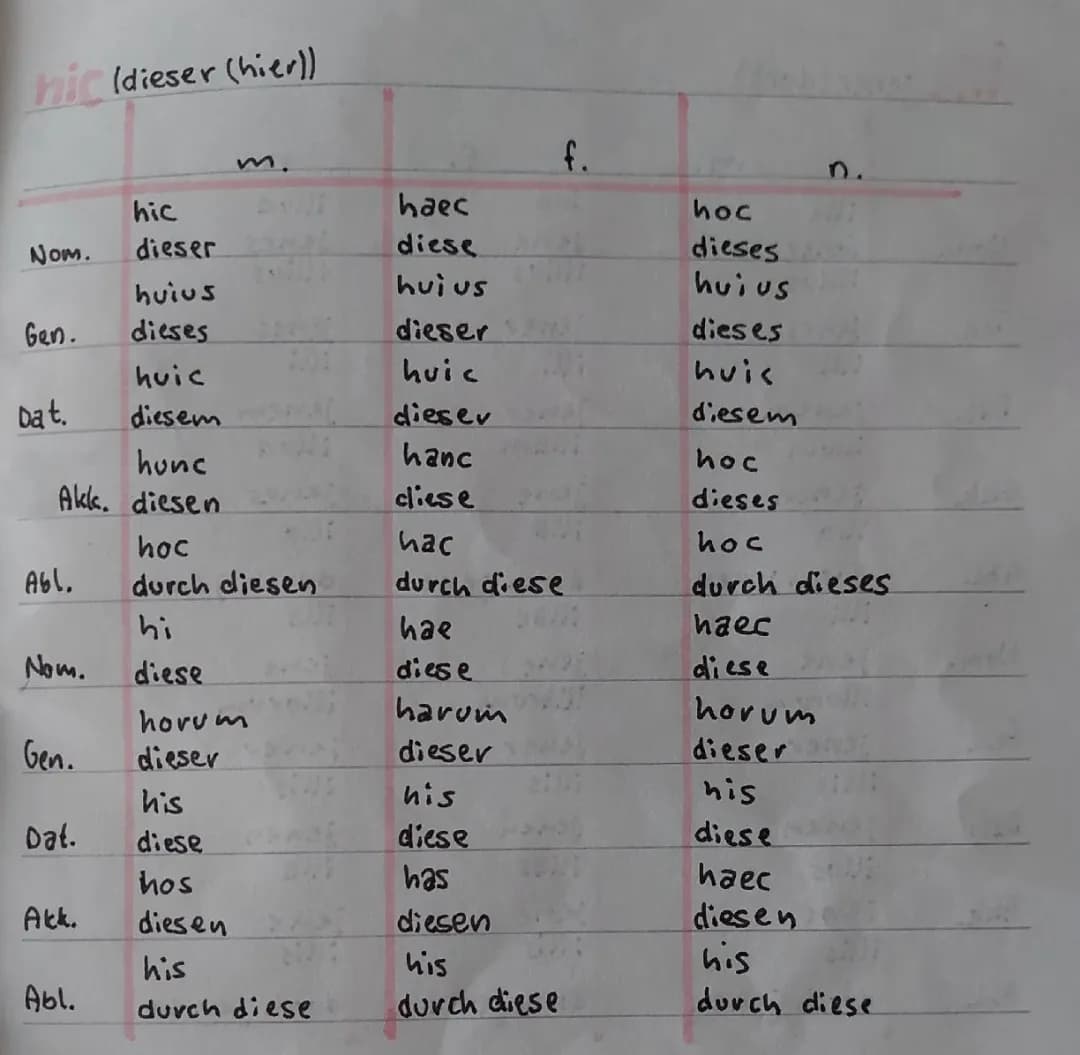 hic (dieser (hier))
m. f. n.
hic haec hoc
Nom. dieser diese dieses
huius huius huius
Gen. dieses dieser dieses
huic huic huic
Dat. diesem dieser diesem
hunc hanc hoc
Akk. diesen diese dieses
hoc hac hoc
Abl. durch diesen durch diese durch dieses
hi hae haec
Nom. diese diese diese
horum harum horum
Gen. dieser dieser dieser
his his his
Dat. diese diese diese
hos has haec
Akk. diesen diesen diesen
his his his
Abl. durch diese durch diese durch diese